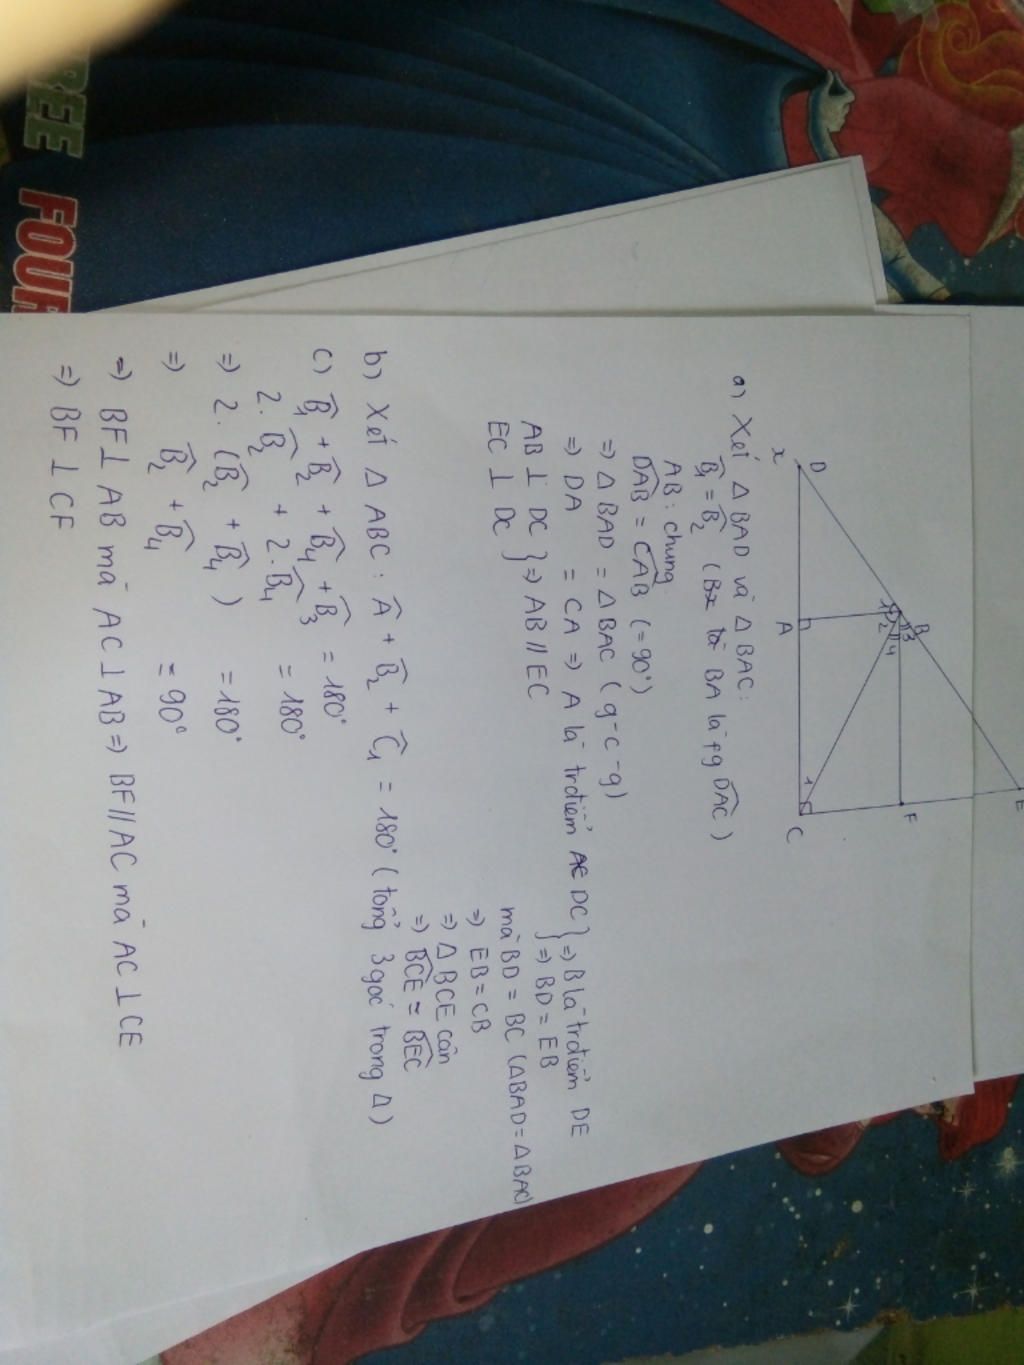 REE
FOUR
D
x
A
B
1
2
3
4
E
F
1
C
a) Xét Δ BAD và Δ BAC:
B̂₁ = B̂₂ (Bx là BA là pg DAC)
AB: chung
DAB = CAB (=90°)
=> Δ BAD = Δ BAC (g-c-g)
=> DA = CA => A là trđiểm DC } => B là trđiểm DE
AB ⊥ DC } => AB // EC } => BD = EB
EC ⊥ DC
mà BD = BC (ΔBAD = ΔBAC)
=> EB = CB
=> Δ BCE cân
=> BCE = BEC
b) Xét Δ ABC: Â + B̂₂ + Ĉ₁ = 180° (tổng 3 góc trong Δ)
c) B̂₁ + B̂₂ + B̂₄ + B̂₃ = 180°
2. B̂₂ + 2. B̂₄ = 180°
=> 2. (B̂₂ + B̂₄) = 180°
=> B̂₂ + B̂₄ = 90°
=> BF ⊥ AB mà AC ⊥ AB => BF // AC mà AC ⊥ CE
=> BF ⊥ CF